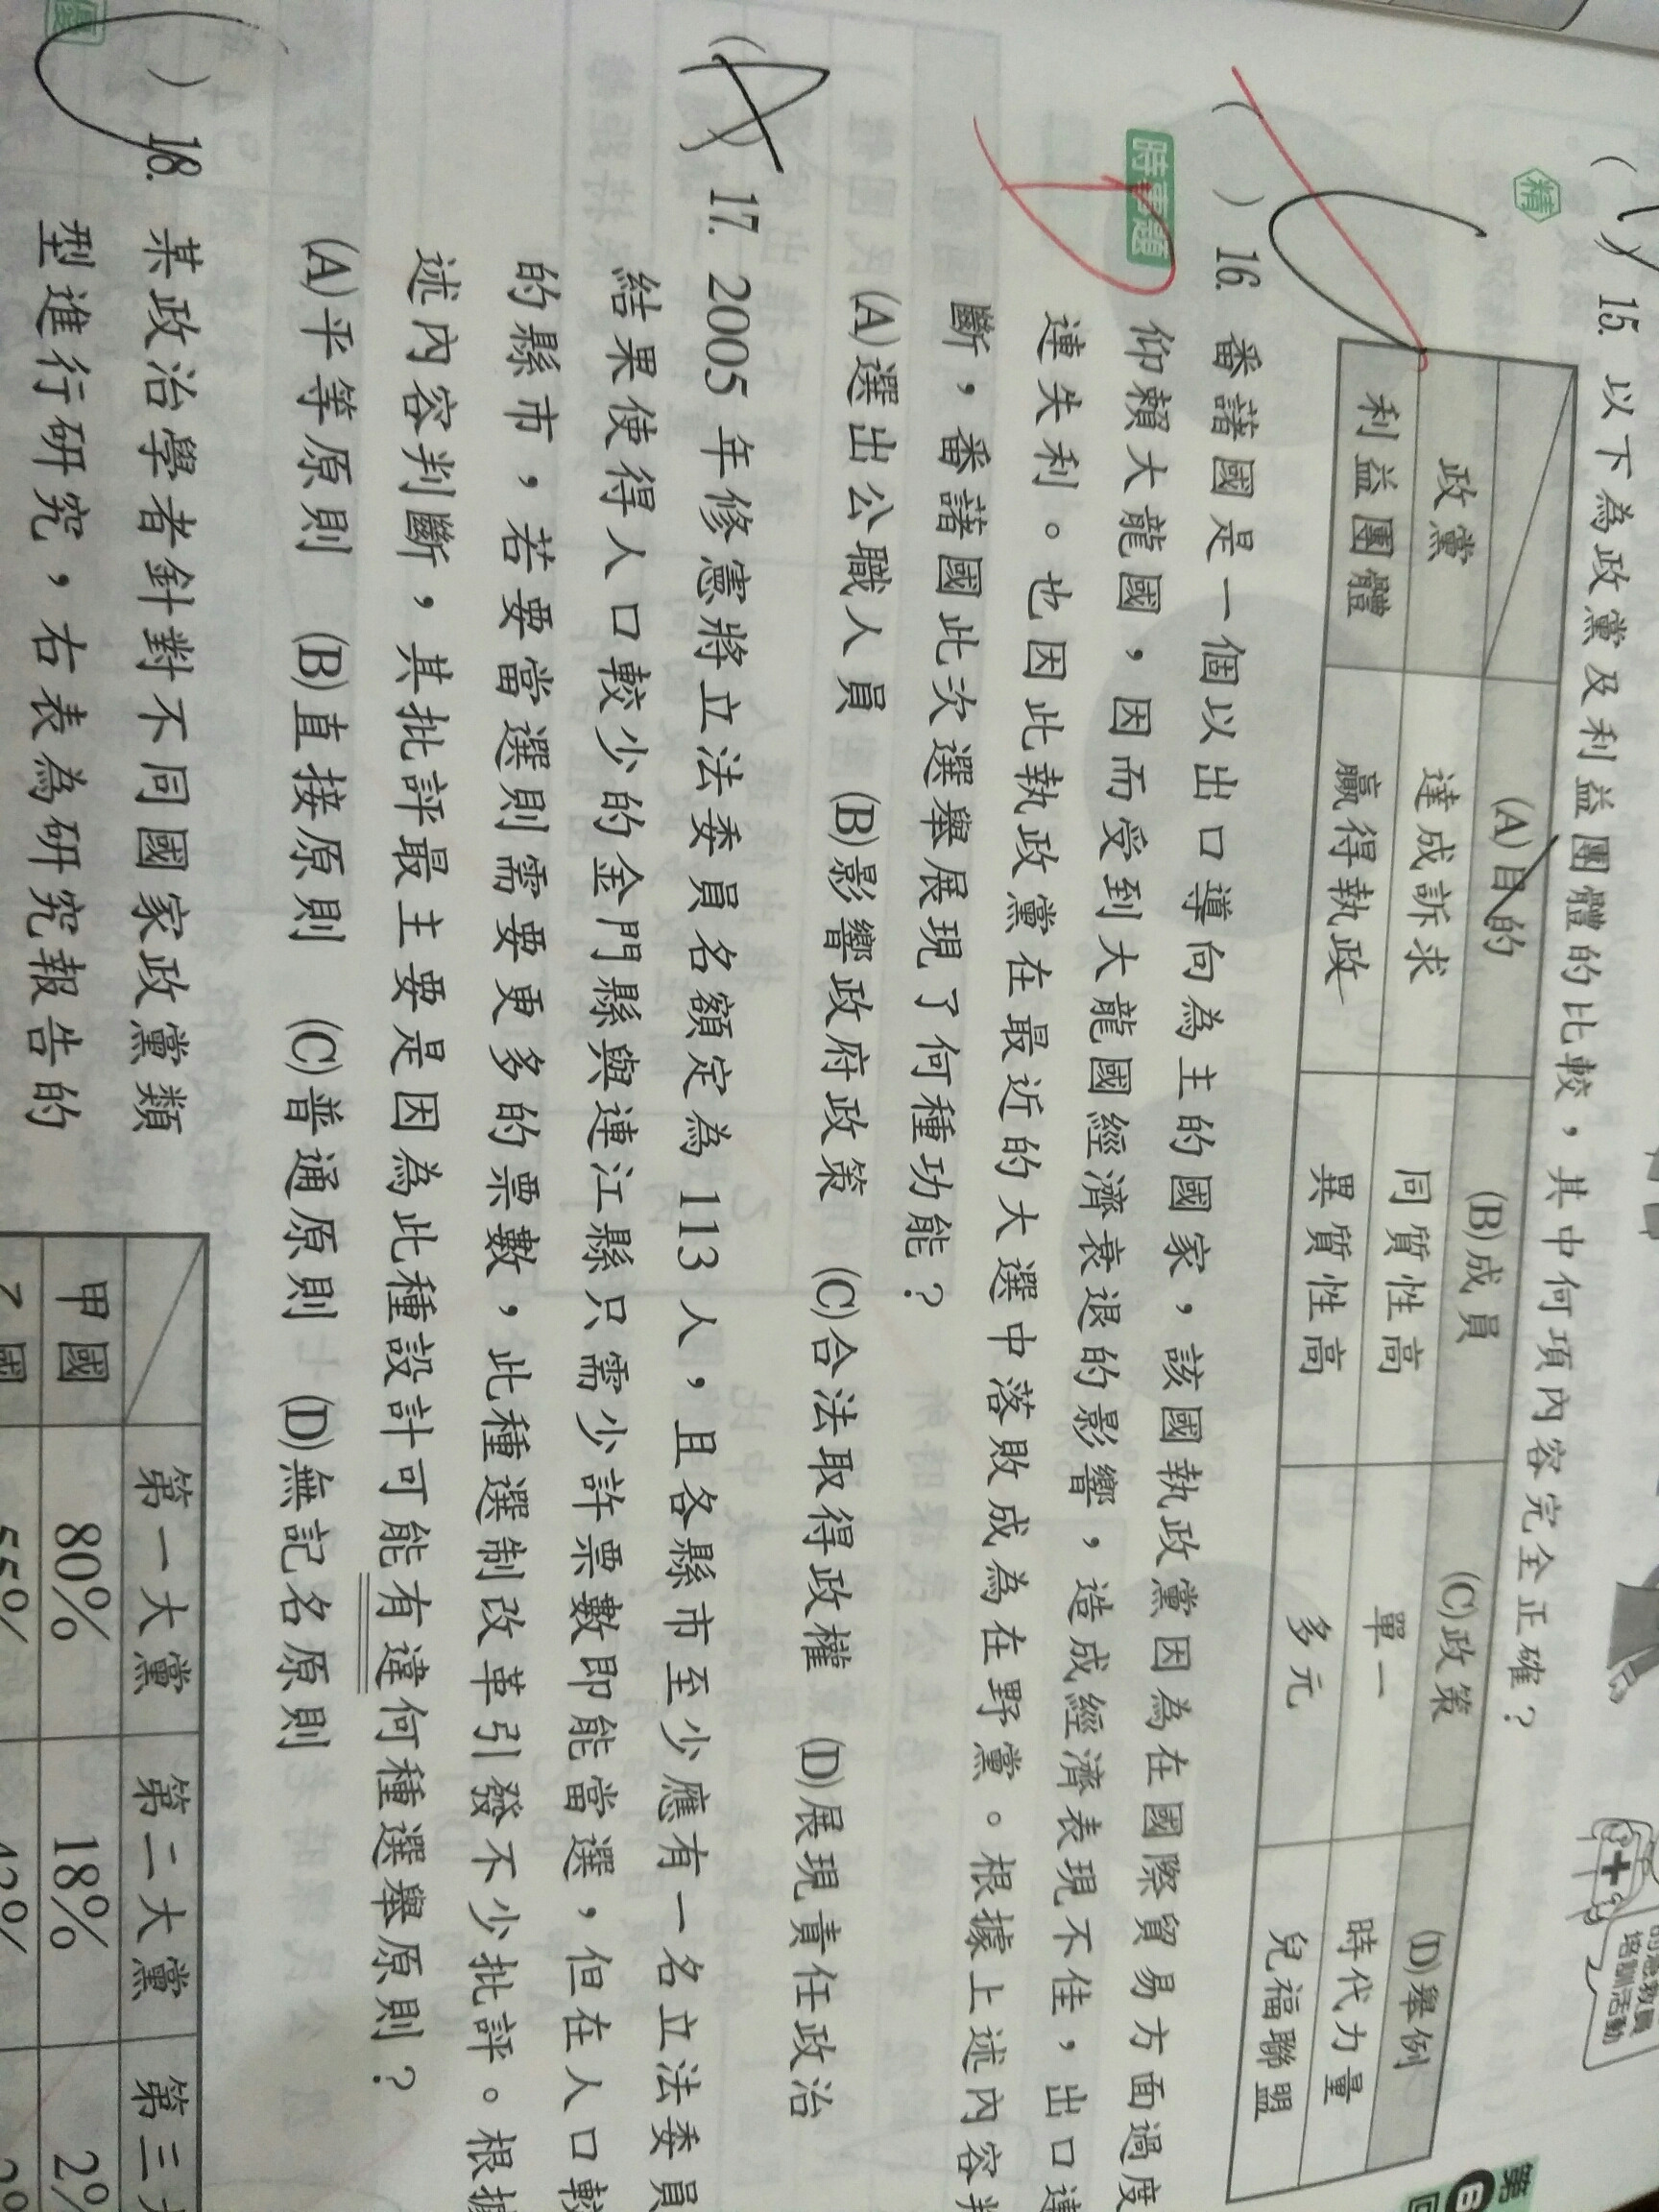 的急救員
培訓活動
第
8
回
15. 以下為政黨及利益團體的比較，其中何項內容完全正確？
精
(A)目的 (B)成員 (C)政策 (D)舉例
政黨 達成訴求 同質性高 單一 時代力量
利益團體 贏得執政 異質性高 多元 兒福聯盟
( ) 16. 番藷國是一個以出口導向為主的國家，該國執政黨因為在國際貿易方面過度
時事題
仰賴大龍國，因而受到大龍國經濟衰退的影響，造成經濟表現不佳，出口連
連失利。也因此執政黨在最近的大選中落敗成為在野黨。根據上述內容判
斷，番藷國此次選舉展現了何種功能？
(A)選出公職人員 (B)影響政府政策 (C)合法取得政權 (D)展現責任政治
(A) 17. 2005 年修憲將立法委員名額定為 113 人，且各縣市至少應有一名立法委員
結果使得人口較少的金門縣與連江縣只需少許票數即能當選，但在人口較
的縣市，若要當選則需要更多的票數，此種選制改革引發不少批評。根據
述內容判斷，其批評最主要是因為此種設計可能有違何種選舉原則？
(A)平等原則 (B)直接原則 (C)普通原則 (D)無記名原則
) 18. 某政治學者針對不同國家政黨類
型進行研究，右表為研究報告的
第一大黨 第二大黨 第三大
甲國 80% 18% 2%
乙國 55%